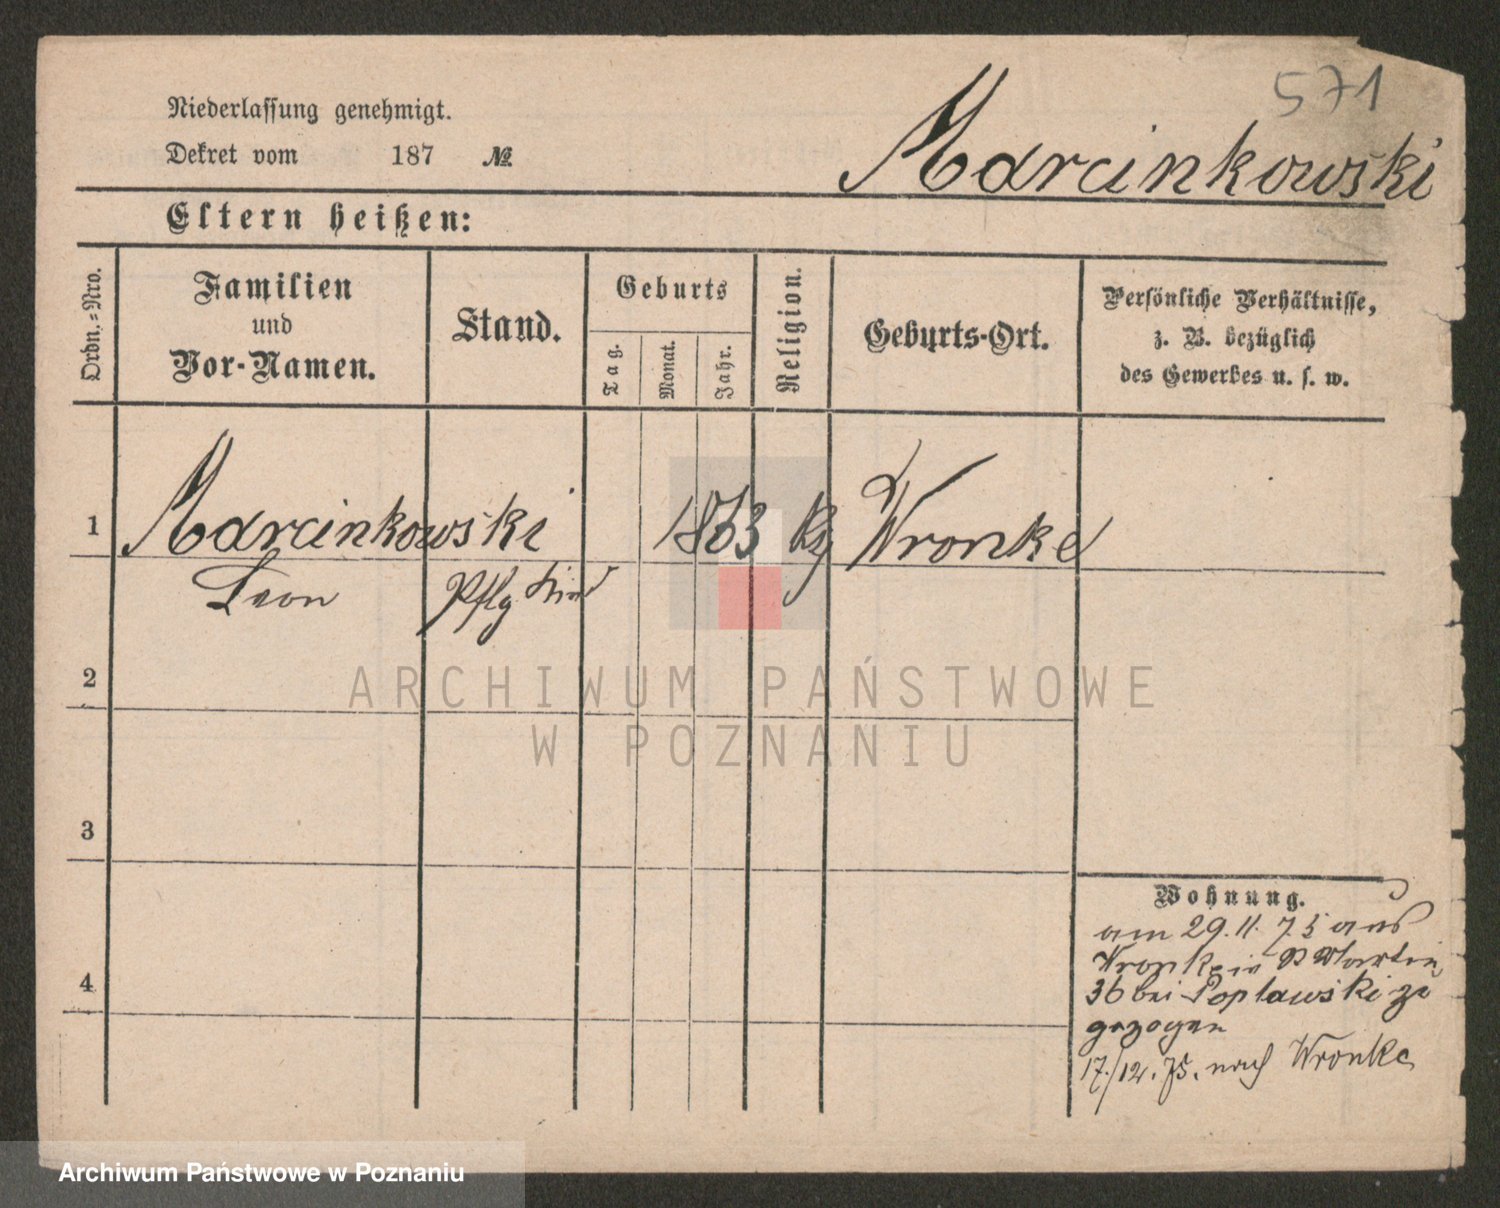 571
Niederlassung genehmigt.
Dekret vom 187 №
Marcinkowski
Eltern heißen:
Ordn.=Nro.
Familien
und
Vor-Namen.
Stand.
Geburts
Tag.
Monat.
Jahr.
Religion.
Geburts-Ort.
Persönliche Verhältnisse,
z. B. bezüglich
des Gewerbes u. s. w.
1
Marcinkowski 1863 Wronke
Leon Pflg Kind
2
3
4
ARCHIWUM PAŃSTWOWE
W POZNANIU
Wohnung.
am 29.11.75 aus
Wronke in Martin
36 bei Poplawski zu
gezogen
17./12.75. nach Wronke
Archiwum Państwowe w Poznaniu